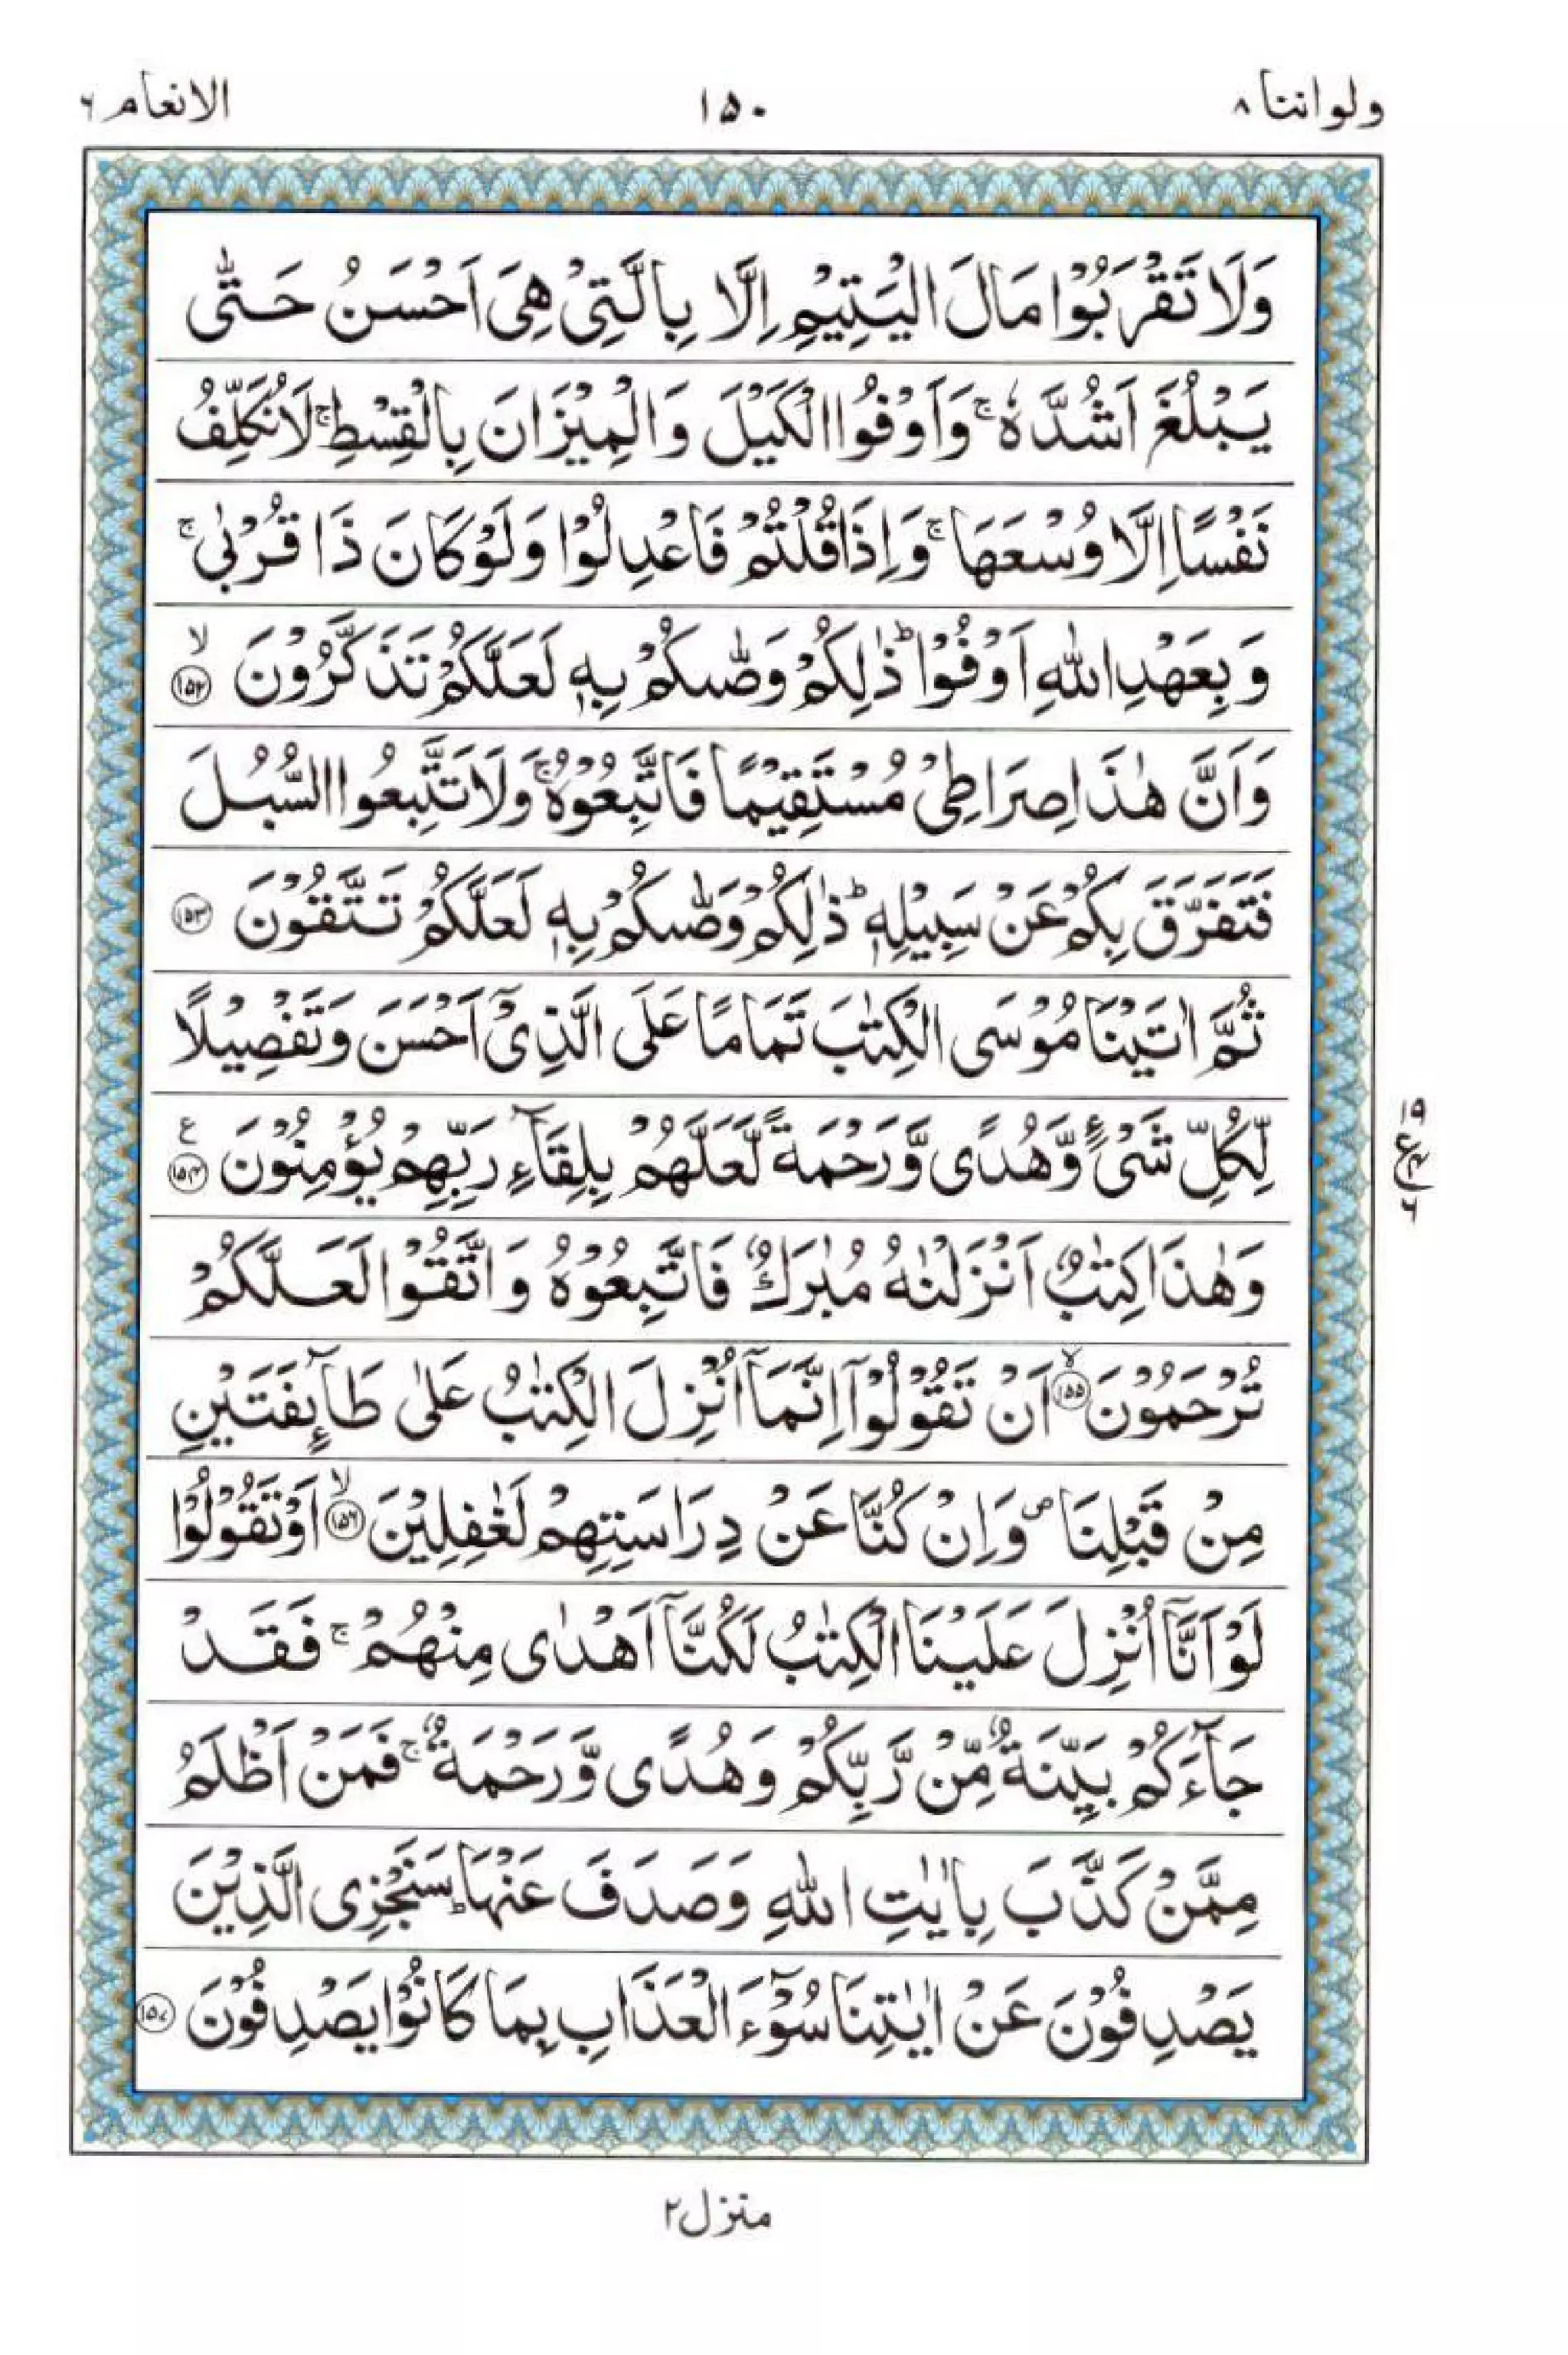 ولواننا ۸
۱۵۰
الانعام ۶
وَلَا تَقْرَبُوْا مَالَ الْيَتِيْمِ اِلَّا بِالَّتِيْ هِيَ اَحْسَنُ حَتّٰى
يَبْلُغَ اَشُدَّهٗ ۚ وَاَوْفُوا الْكَيْلَ وَالْمِيْزَانَ بِالْقِسْطِ ۚ لَا نُكَلِّفُ
نَفْسًا اِلَّا وُسْعَهَا ۚ وَاِذَا قُلْتُمْ فَاعْدِلُوْا وَلَوْ كَانَ ذَا قُرْبٰى ۚ
وَبِعَهْدِ اللّٰهِ اَوْفُوْا ؕ ذٰلِكُمْ وَصّٰىكُمْ بِهٖ لَعَلَّكُمْ تَذَكَّرُوْنَ ۙ ۱۵۲
وَاَنَّ هٰذَا صِرَاطِيْ مُسْتَقِيْمًا فَاتَّبِعُوْهُ ۚ وَلَا تَتَّبِعُوا السُّبُلَ
فَتَفَرَّقَ بِكُمْ عَنْ سَبِيْلِهٖ ؕ ذٰلِكُمْ وَصّٰىكُمْ بِهٖ لَعَلَّكُمْ تَتَّقُوْنَ ۱۵۳
ثُمَّ اٰتَيْنَا مُوْسَى الْكِتٰبَ تَمَامًا عَلَى الَّذِيْٓ اَحْسَنَ وَتَفْصِيْلًا
لِّكُلِّ شَيْءٍ وَّهُدًى وَّرَحْمَةً لَّعَلَّهُمْ بِلِقَآءِ رَبِّهِمْ يُؤْمِنُوْنَ ع ۱۵۴
۱۹
ع
۶
وَهٰذَا كِتٰبٌ اَنْزَلْنٰهُ مُبٰرَكٌ فَاتَّبِعُوْهُ وَاتَّقُوْا لَعَلَّكُمْ
تُرْحَمُوْنَ ۙ ۱۵۵ اَنْ تَقُوْلُوْٓا اِنَّمَآ اُنْزِلَ الْكِتٰبُ عَلٰى طَآئِفَتَيْنِ
مِنْ قَبْلِنَا ۪ وَاِنْ كُنَّا عَنْ دِرَاسَتِهِمْ لَغٰفِلِيْنَ ۙ ۱۵۶ اَوْ تَقُوْلُوْا
لَوْ اَنَّآ اُنْزِلَ عَلَيْنَا الْكِتٰبُ لَكُنَّآ اَهْدٰى مِنْهُمْ ۚ فَقَدْ
جَآءَكُمْ بَيِّنَةٌ مِّنْ رَّبِّكُمْ وَهُدًى وَّرَحْمَةٌ ۚ فَمَنْ اَظْلَمُ
مِمَّنْ كَذَّبَ بِاٰيٰتِ اللّٰهِ وَصَدَفَ عَنْهَا ؕ سَنَجْزِى الَّذِيْنَ
يَصْدِفُوْنَ عَنْ اٰيٰتِنَا سُوْٓءَ الْعَذَابِ بِمَا كَانُوْا يَصْدِفُوْنَ ۱۵۷
منزل ۲